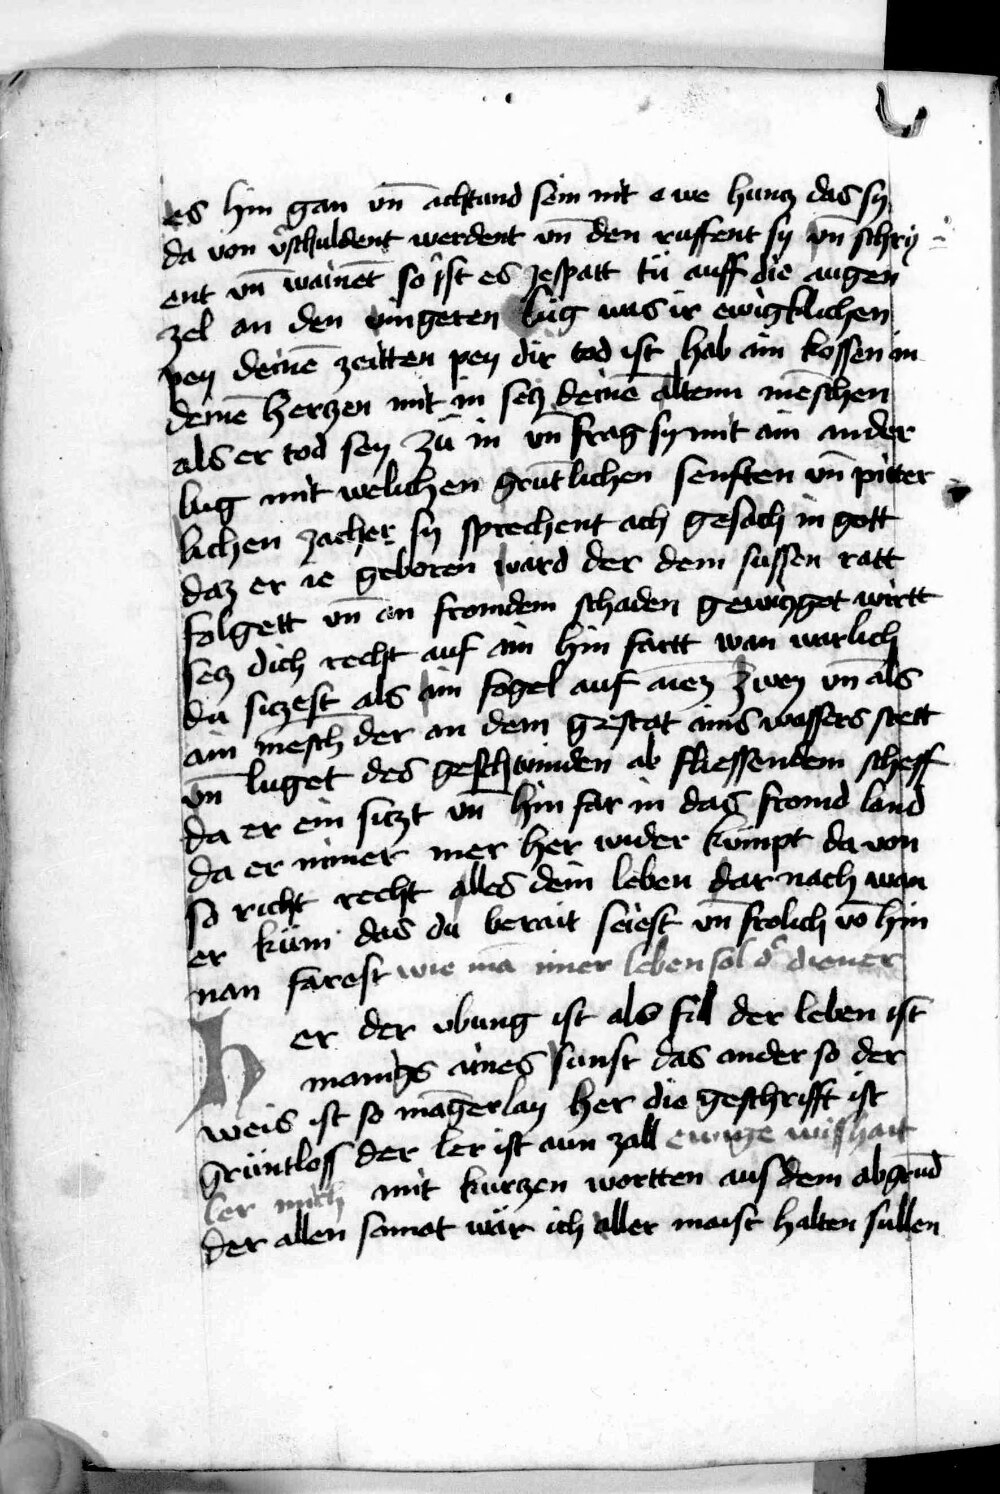 es hin gan vn̄ achtand sein nit e we huncz das sy
da von v̂schuldent werdent vn̄ den ruffent sy vn̄ schry
ent vn̄ wainēt so ist es zespatt tü auff die augen
zel an den vingeren lüg was ir ewigklichen
pey deinē zeitten pey dir tod ist hab ain kossen in
deinē herczen mit in secz deinē altenn mēschen
als er tod sey zü in vn̄ frag sy mit ain ander
lug mit welichen grūtlichen senften vn̄ pitter
lichen zacher sy sprechent ach gesach in gott
daz er ie geboren ward der dem sussen ratt
folgett vn̄ an fromdem schaden gewiczgot wirtt
secz dich recht auf ain hin fartt wan warlich
du siczest als ain fogel auf aiēz zwey vn̄ als
ain mēsch der an dem gestat ains wassers stett
vn̄ luget des geschwinden ab fliessendem scheff
da er ein siczt vn̄ hin far in das fromd land
da er nimer mer her wider kümpt da von
so richt recht alles dein leben dar nach wan
er küm das du berait seiest vn̄ frolich vō hin
nan farest wie mā imer leben sol d̂ diener
Her der vbung ist als fill der leben ist
manigs aines sunst das ander so der
weis ist so māgerlay her die geschrifft ist
grüntloss der ler ist aun zall ewige wisshait
ler mich mit kurzen wortten aus dem abgrūd
der allen samat wär ich aller maist halten sullen